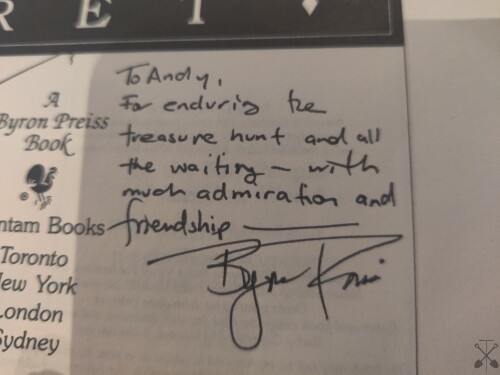 R E T
To Andy,
For enduring the
treasure hunt and all
the waiting – with
much admiration and
friendship
Byron Preiss
A
Byron Preiss
Book
ntam Books
Toronto
ew York
London
Sydney